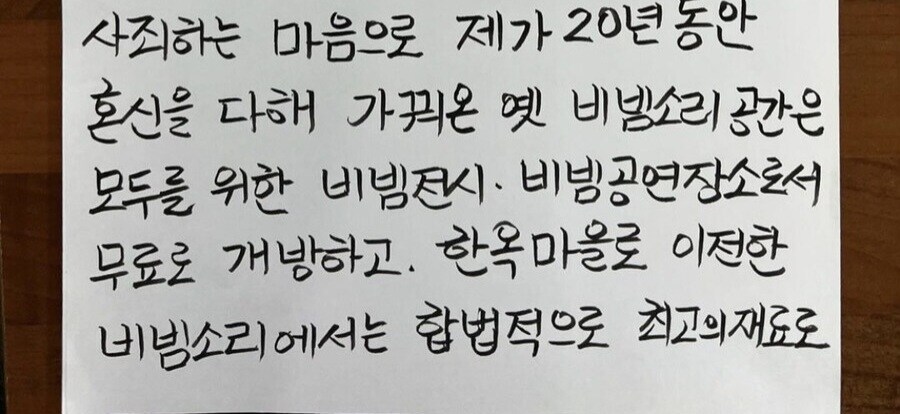 사죄하는 마음으로 제가 20년 동안
혼신을 다해 가꿔온 옛 비빔소리 공간은
모두를 위한 비빔전시. 비빔공연장소로서
무료로 개방하고. 한옥마을로 이전한
비빔소리에서는 합법적으로 최고의재료로